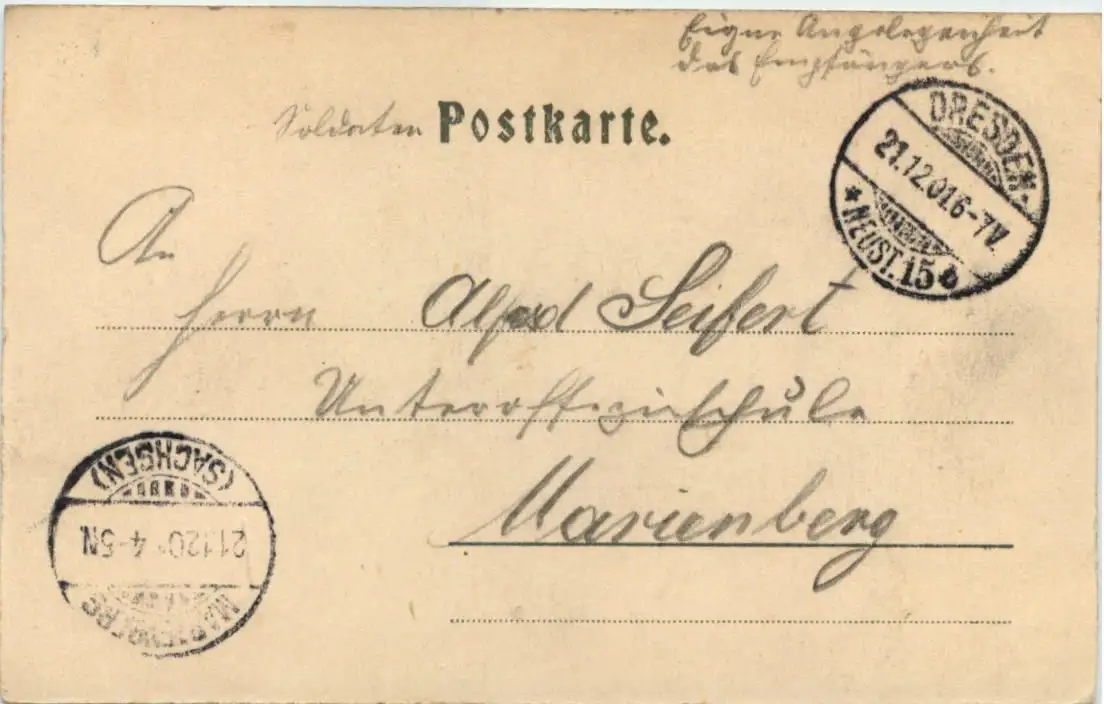 Eigne Angelegenheit
des Empfängers.
Soldaten Postkarte.
DRESDEN-
21.12.01 6-7V.
* NEUST. 15 b
An
Herrn Alfred Seifert
Unteroffizierschule
Marienberg
MARIENBERG
21 12 0 4-5N
(SACHSEN)